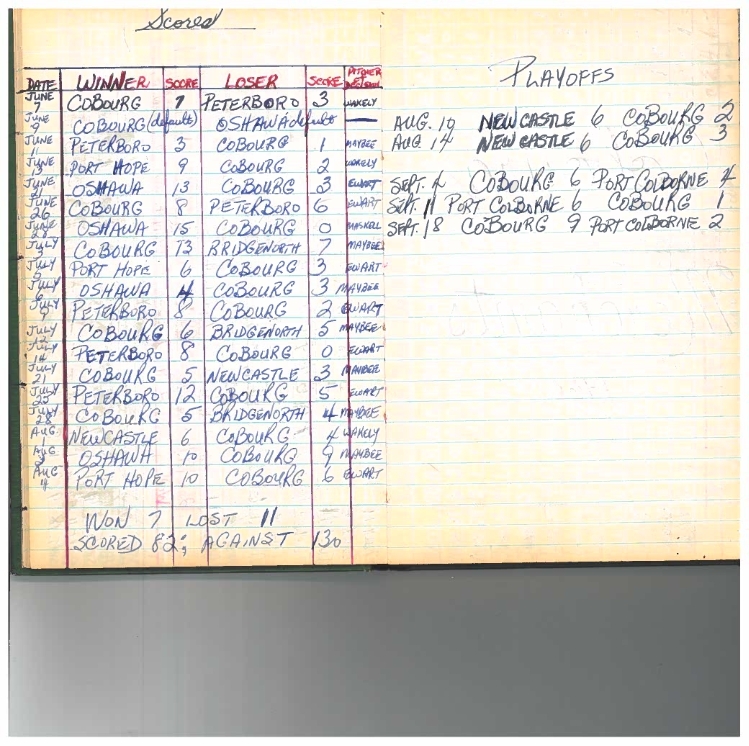 Scored
DATE WINNER SCORE LOSER SCORE PITCHER
JUNE 7 COBOURG 7 PETERBORO 3 WAKELY
JUNE 9 COBOURG (default) OSHAWA default
JUNE PETERBORO 3 COBOURG 1 MAYBEE
JUNE 13 PORT HOPE 9 COBOURG 2 WAKELY
JUNE 21 OSHAWA 13 COBOURG 3 EWART
JUNE 26 COBOURG 8 PETERBORO 6 EWART
JUNE 28 OSHAWA 15 COBOURG 0 MASKELL
JULY 3 COBOURG 13 BRIDGENORTH 7 MAYBEE
JULY PORT HOPE 6 COBOURG 3 EWART
JULY OSHAWA 4 COBOURG 3 MAYBEE
JULY PETERBORO 8 COBOURG 2 EWART
JULY 12 COBOURG 6 BRIDGENORTH 5 MAYBEE
JULY 14 PETERBORO 8 COBOURG 0 EWART
JULY 21 COBOURG 5 NEWCASTLE 3 MAYBEE
JULY 25 PETERBORO 12 COBOURG 5 EWART
JULY 28 COBOURG 5 BRIDGENORTH 4 MAYBEE
AUG 1 NEWCASTLE 6 COBOURG 4 WAKELY
AUG OSHAWA 10 COBOURG 9 MAYBEE
AUG 4 PORT HOPE 10 COBOURG 6 EWART
WON 7 LOST 11
SCORED 82; AGAINST 130
PLAYOFFS
AUG. 10 NEWCASTLE 6 COBOURG 2
AUG 14 NEWCASTLE 6 COBOURG 3
SEPT. 4 COBOURG 6 PORT COLBORNE 4
SEPT. 11 PORT COLBORNE 6 COBOURG 1
SEPT. 18 COBOURG 9 PORT COLBORNE 2